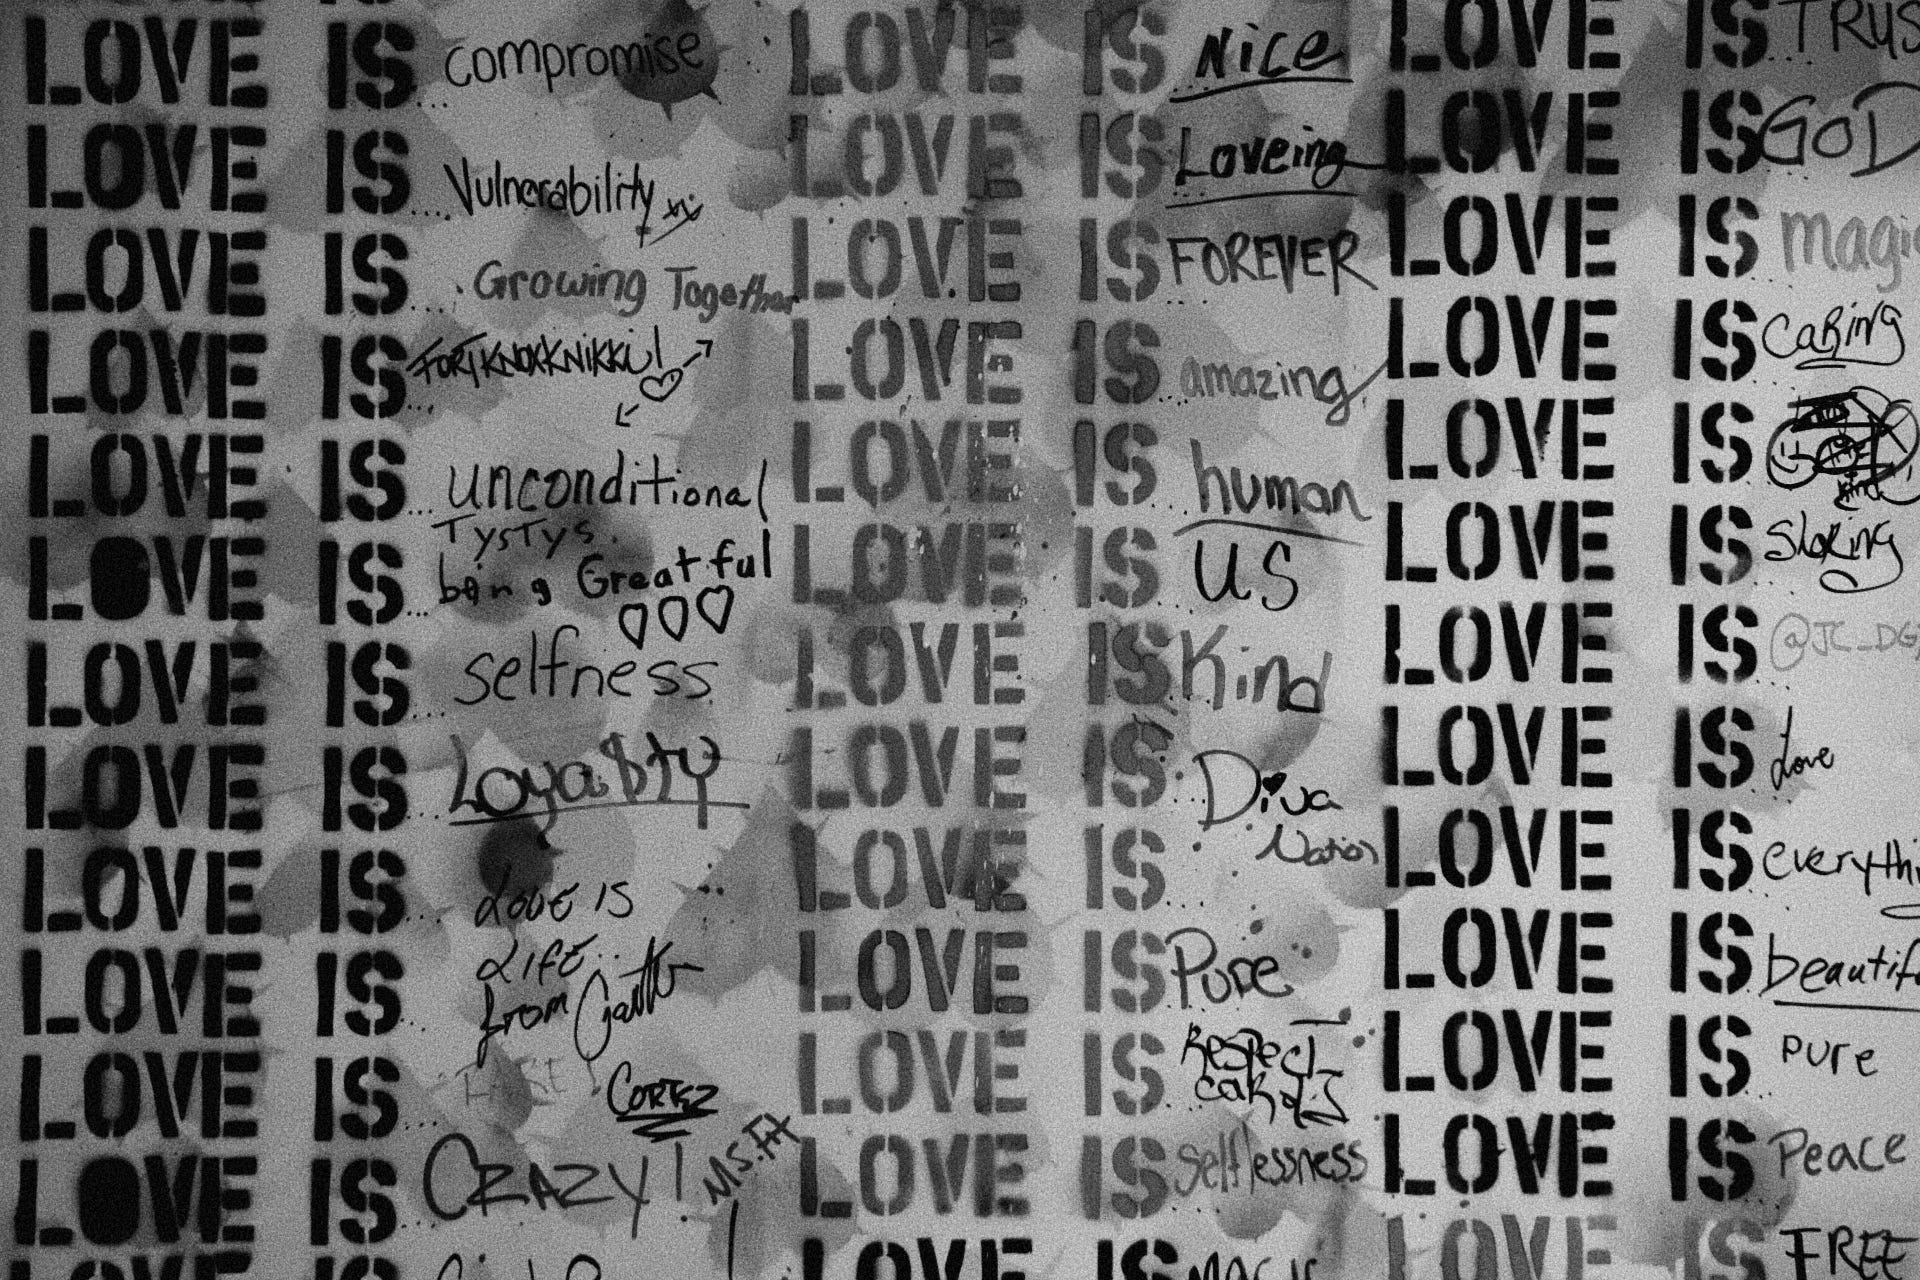 LOVE IS... compromise
LOVE IS.... Vulnerability xx
LOVE IS.... Growing Together
LOVE IS... FORTKNOXKNIKKI!
LOVE IS... unconditional
TYSTYS.
LOVE IS... being Greatful
LOVE IS... selfness
LOVE IS... Loyalty
LOVE IS... Love is
LOVE IS... LIFE...
from
LOVE IS... HART! CORTEZ
LOVE IS... CRAZY! Ms.
LOVE IS
LOVE IS... Nice
LOVE IS... Loveing
LOVE IS... FOREVER
LOVE IS... amazing
LOVE IS... human
LOVE IS... US
LOVE IS... Kind
LOVE IS... Diva
Nation
LOVE IS...
LOVE IS... Pure
LOVE IS... RESPECT
LOVE IS... Selflessness
LOVE IS MAGIC
LOVE IS... TRUS
LOVE IS... GOD
LOVE IS... magic
LOVE IS... CARING
LOVE IS... kind
LOVE IS...
LOVE IS... @JC_DG
LOVE IS... Love
LOVE IS... everythi
LOVE IS... beautif
LOVE IS... pure
LOVE IS... Peace
LOVE IS FREE